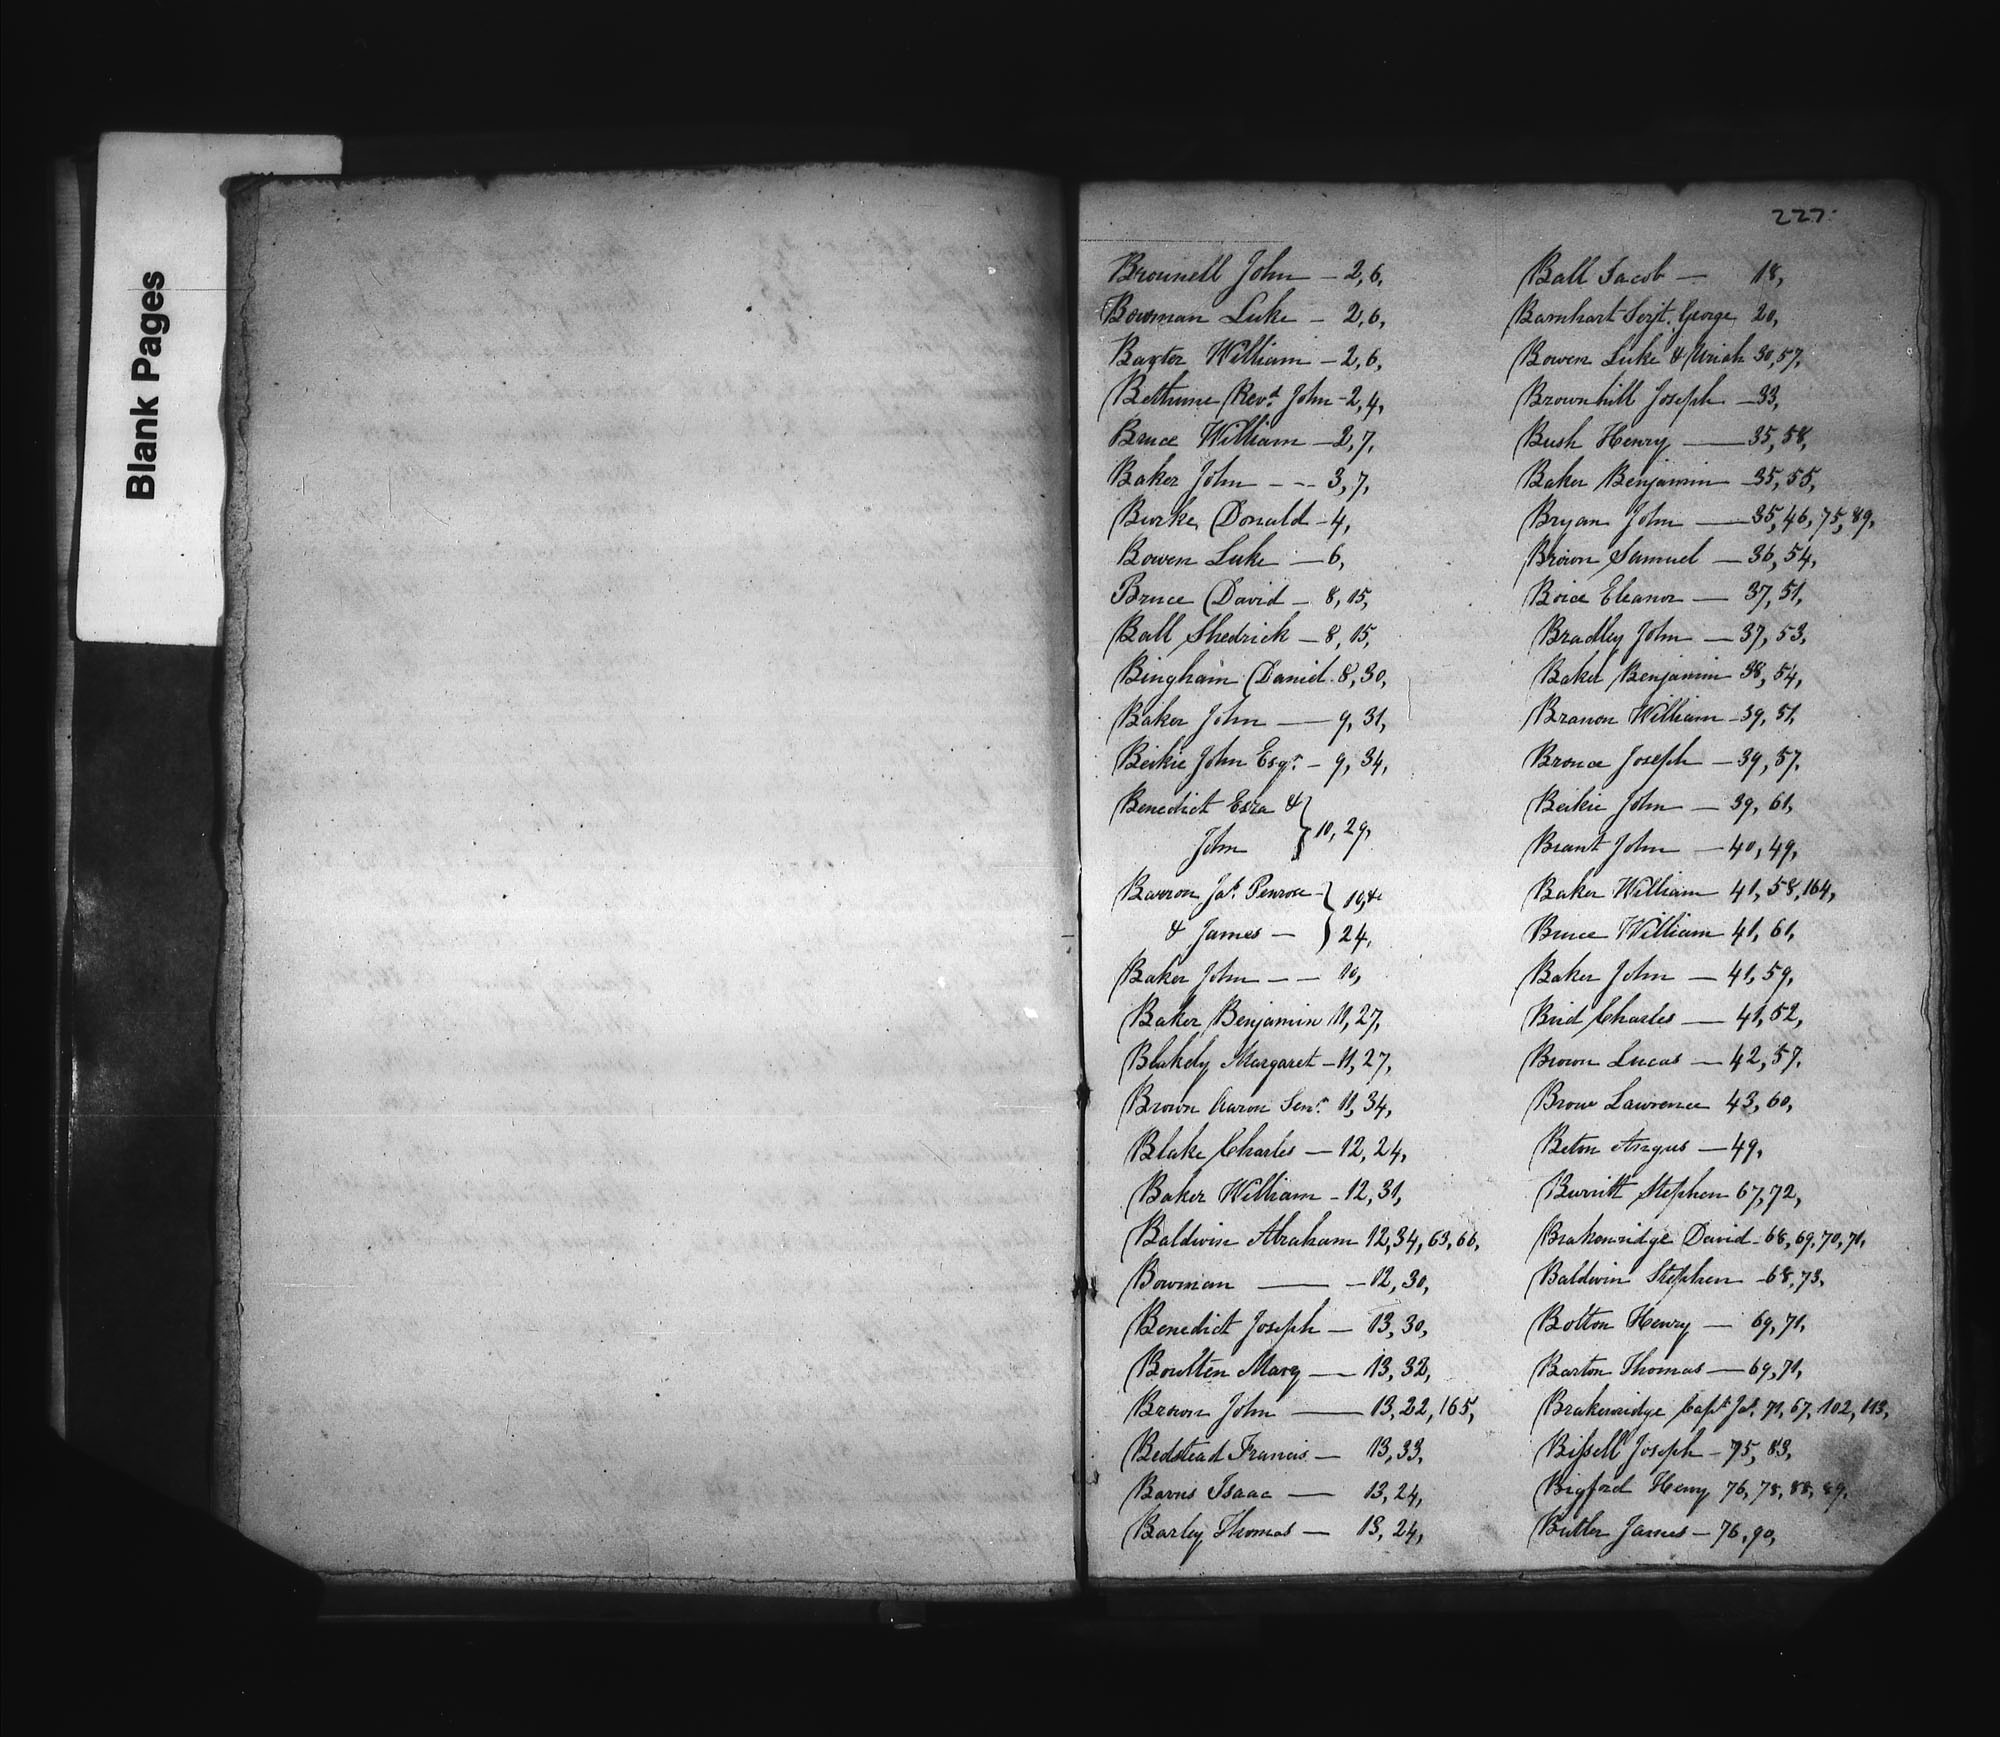 Blank Pages
227.
Brownell John — 2, 6,
Bowman Luke — 2, 6,
Baxter William — 2, 6,
Bethune Revd. John - 2, 4,
Bruce William — 2, 7,
Baker John - - - 3, 7,
Burke Donald - 4,
Bowen Luke — 6,
Bruce David — 8, 15,
Ball Shedrick — 8, 15,
Bingham Daniel. 8, 30,
Baker John — 9, 31,
Beikie John Esqr. - 9, 34,
Benedict Esra &
John } 10, 29,
Barron Jas. Penrose - } 10, &
& James — } 24,
Baker John — — 10,
Baker Benjamin 11, 27,
Blakely Margaret - 11, 27,
Brown Aaron Senr. 11, 34,
Blake Charles — 12, 24,
Baker William - 12, 31,
Baldwin Abraham 12, 34, 63, 66,
Bowman — - 12, 30,
Benedict Joseph — 13, 30,
Boulten Mary — 13, 32,
Brown John — 13, 22, 165,
Bedstead Francis — 13, 33,
Barns Isaac — 13, 24,
Barley Thomas — 13, 24,
Ball Jacob — 18,
Barnhart Serjt. George 20,
Bowen Luke & Uriah 30, 57,
Brownhill Joseph — 33,
Bush Henry — 35, 58,
Baker Benjamin — 35, 55,
Bryan John — 35, 46, 75, 89,
Brown Samuel — 36, 54,
Boice Eleanor — 37, 51,
Bradley John — 37, 53,
Baker Benjamin 38, 54,
Branon William - 39, 51,
Brouce Joseph — 39, 57,
Beikie John — 39, 61,
Brant John — 40, 49,
Baker William 41, 58, 164,
Bruce William 41, 61,
Baker John — 41, 59,
Bird Charles — 41, 52,
Brown Lucas — 42, 57,
Brow Lawrence 43, 60,
Beton Angus — 49,
Burritt Stephen 67, 72,
Brakenridge David - 68, 69, 70, 71,
Baldwin Stephen - 68, 73,
Bolton Henry — 69, 71,
Barton Thomas — 69, 71,
Brakenridge Capt. Jas. 71, 67, 102, 113,
Bissell Joseph — 75, 83,
Bigford Henry 76, 78, 88, 89,
Butler James — 76, 90,